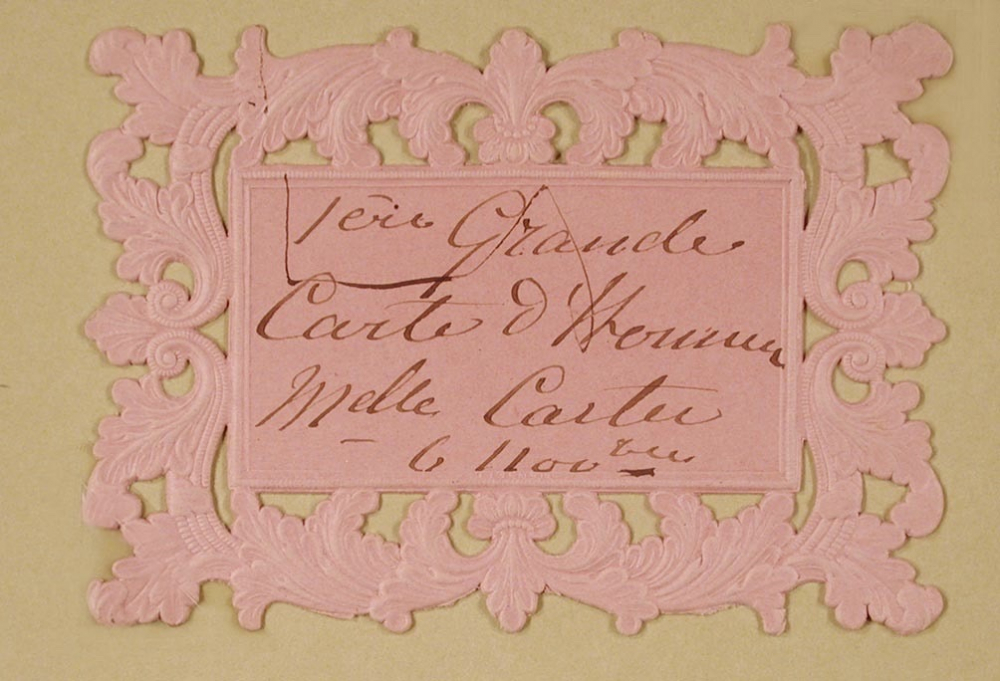 1ère Grande
Carte d'Honneur
Melle Carter
6 Novbre